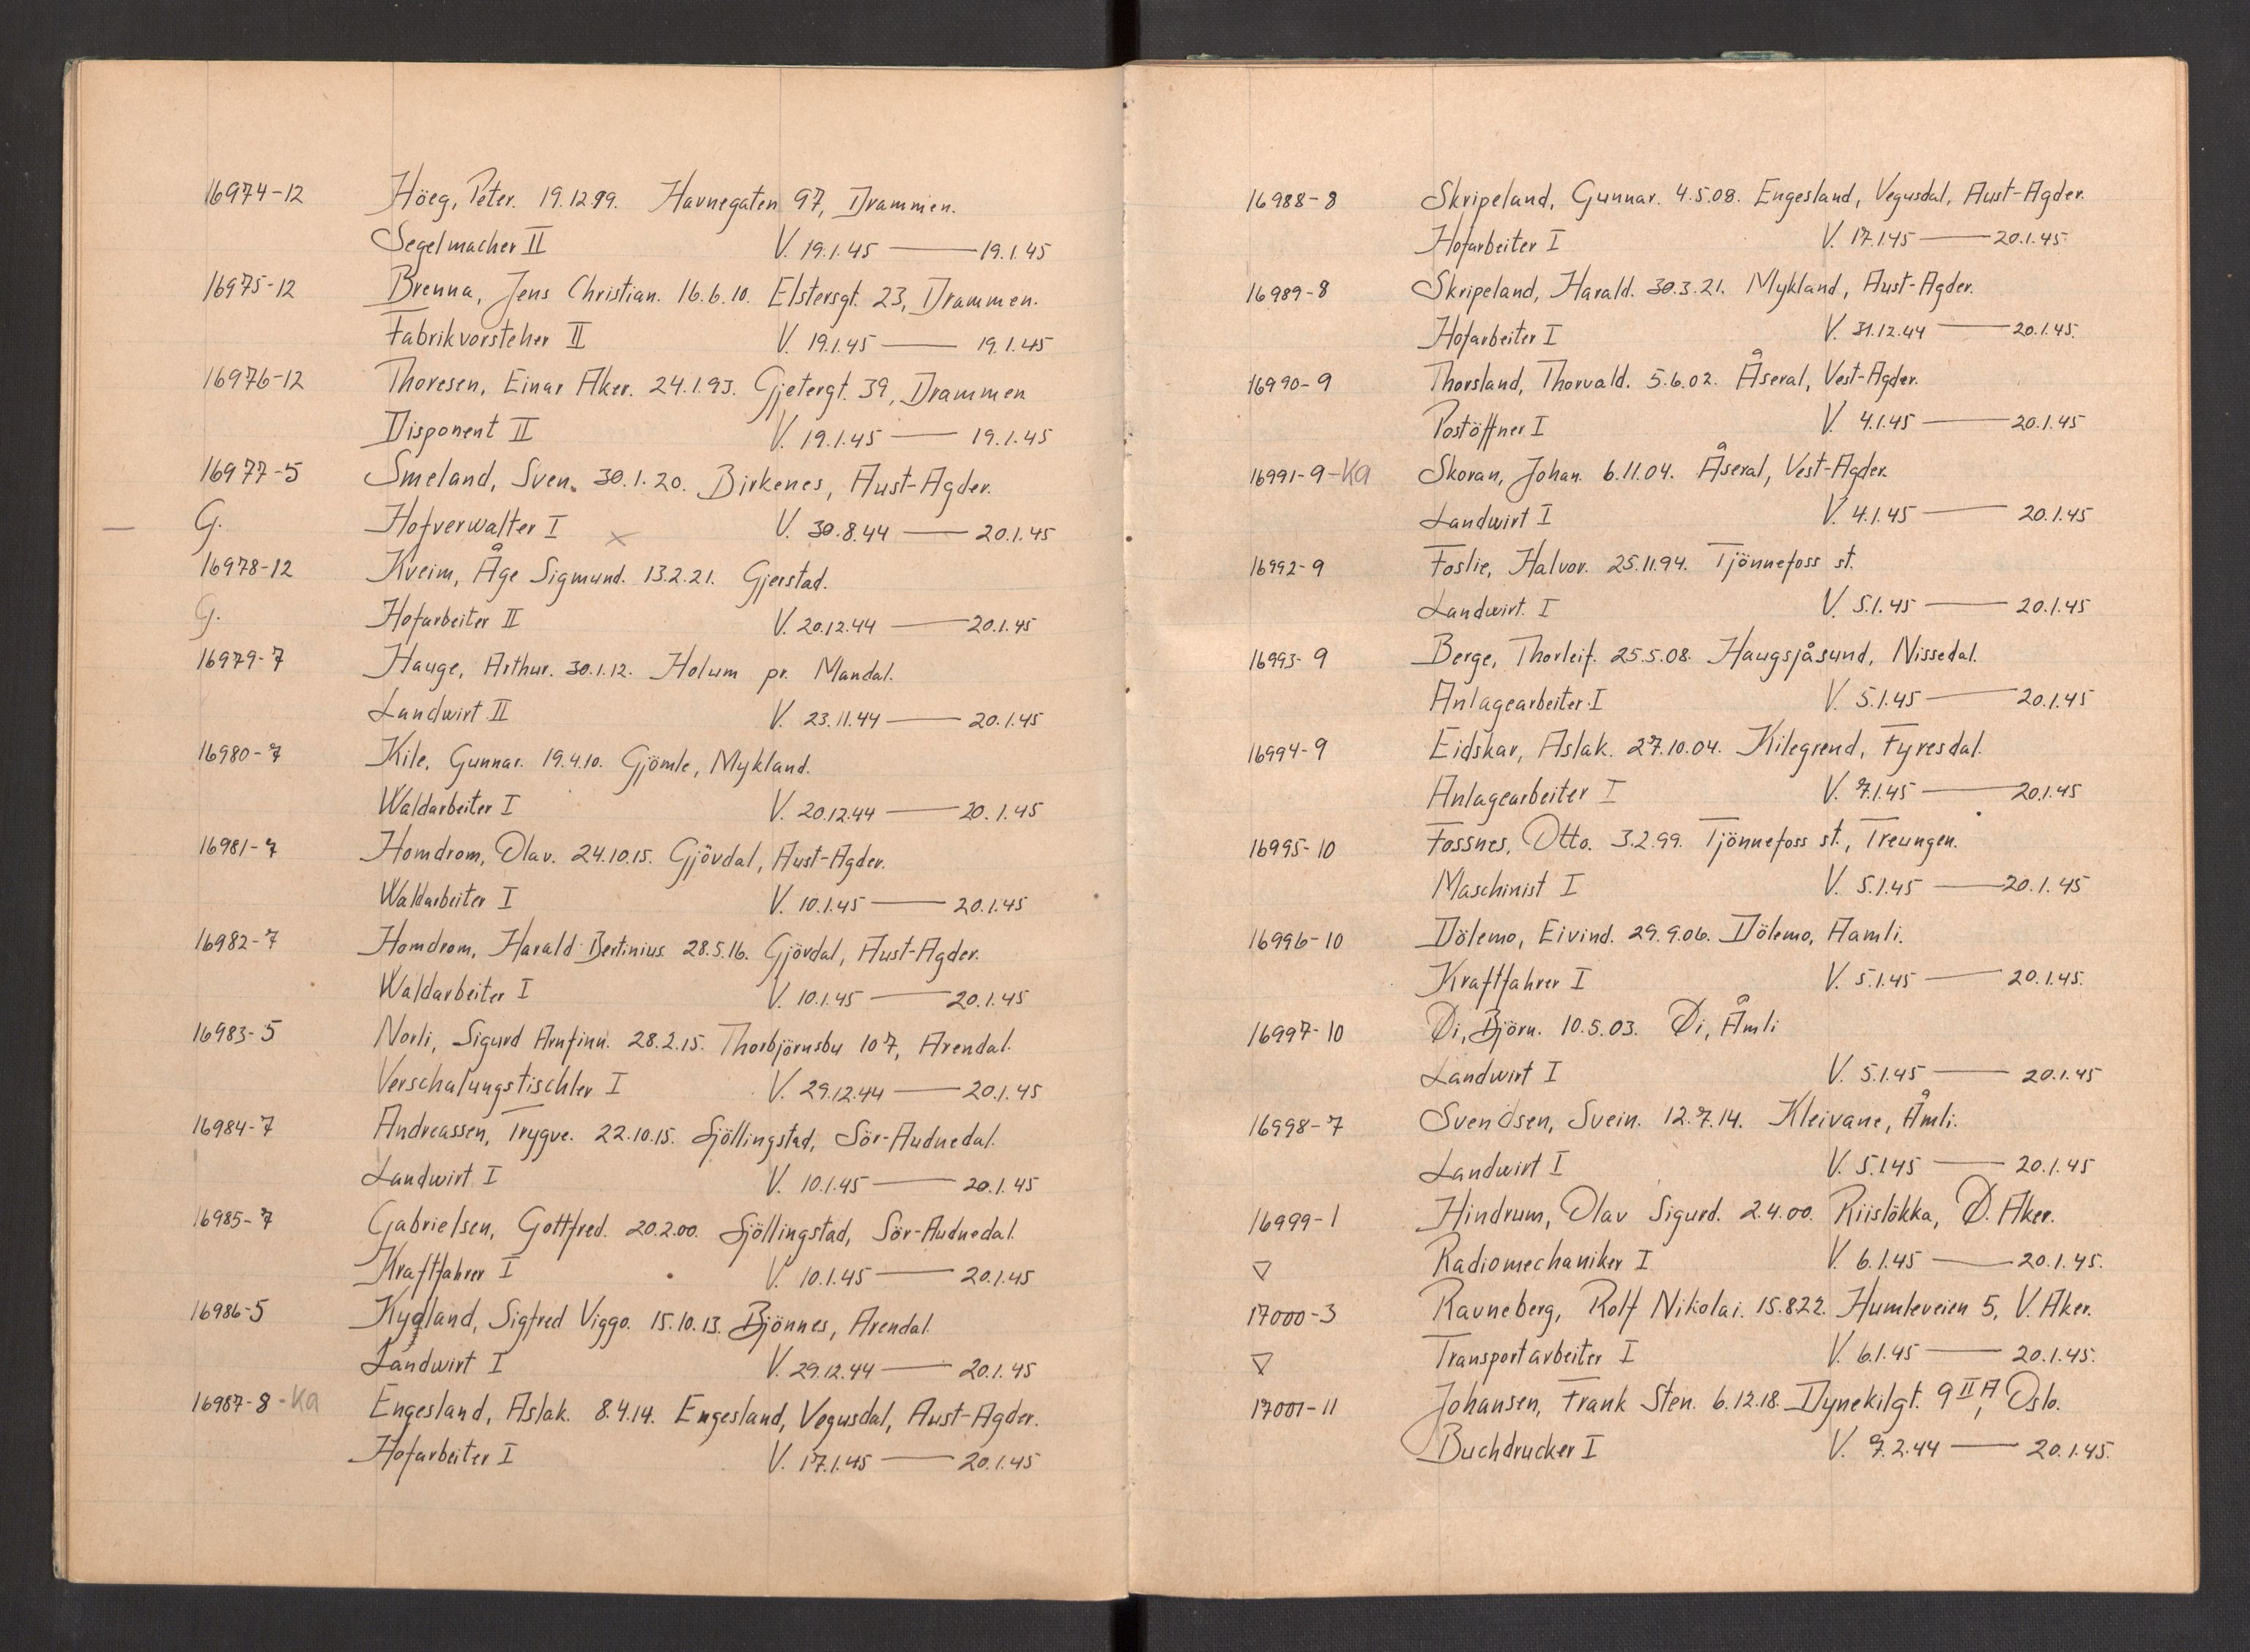 16974-12 Höeg, Peter. 19.12.99. Havnegaten 97, Drammen.
Segelmacher II V. 19.1.45 — 19.1.45
16975-12 Brenna, Jens Christian. 16.6.10. Elstersgt. 23, Drammen.
Fabrikvorsteher II V. 19.1.45 — 19.1.45
16976-12 Thoresen, Einar Aker. 24.1.93. Gjetergt. 39, Drammen
Disponent II V. 19.1.45 — 19.1.45
16977-5 Smeland, Sven. 30.1.20. Birkenes, Aust-Agder.
— G. Hofverwalter I x V. 30.8.44 — 20.1.45
16978-12 Kveim, Åge Sigmund. 13.2.21. Gjerstad.
G. Hofarbeiter II V. 20.12.44 — 20.1.45
16979-7 Hauge, Arthur. 30.1.12. Holum pr. Mandal.
Landwirt II V. 23.11.44 — 20.1.45
16980-7 Kile, Gunnar. 19.4.10. Gjömle, Mykland.
Waldarbeiter I V. 20.12.44 — 20.1.45
16981-7 Homdrom, Olav. 24.10.15. Gjövdal, Aust-Agder.
Waldarbeiter I V. 10.1.45 — 20.1.45
16982-7 Homdrom, Harald Bertinius. 28.5.16. Gjövdal, Aust-Agder.
Waldarbeiter I V. 10.1.45 — 20.1.45
16983-5 Norli, Sigurd Arnfinn. 28.2.15. Thorbjörnsbu 107, Arendal.
Verschalungstischler I V. 29.12.44 — 20.1.45
16984-7 Andreassen, Trygve. 22.10.15. Fjöllingstad, Sör-Audnedal.
Landwirt I V. 10.1.45 — 20.1.45
16985-7 Gabrielsen, Gottfred. 20.2.00. Fjöllingstad, Sör-Audnedal.
Kraftfahrer I V. 10.1.45 — 20.1.45
16986-5 Kydland, Sigfred Viggo. 15.10.13. Bjönnes, Arendal.
Landwirt I V. 29.12.44 — 20.1.45
16987-8-Ka Engesland, Aslak. 8.4.14. Engesland, Vegusdal, Aust-Agder.
Hofarbeiter I V. 17.1.45 — 20.1.45
16988-8 Skripeland, Gunnar. 4.5.08. Engesland, Vegusdal, Aust-Agder.
Hofarbeiter I V. 17.1.45 — 20.1.45
16989-8 Skripeland, Harald. 30.3.21. Mykland, Aust-Agder.
Hofarbeiter I V. 31.12.44 — 20.1.45.
16990-9 Thorsland, Thorvald. 5.6.02. Åseral, Vest-Agder.
Postöffner I V. 4.1.45 — 20.1.45
16991-9-Ka Skoran, Johan. 6.11.04. Åseral, Vest-Agder.
Landwirt I V. 4.1.45 — 20.1.45
16992-9 Foslie, Halvor. 25.11.94. Tjönnefoss st.
Landwirt. I V. 5.1.45 — 20.1.45
16993-9 Berge, Thorleif. 25.5.08. Haugsjåsund, Nissedal.
Anlagearbeiter I V. 5.1.45 — 20.1.45
16994-9 Eidskar, Aslak. 27.10.04. Kilegrend, Fyresdal.
Anlagearbeiter I V. 7.1.45 — 20.1.45
16995-10 Fossnes, Otto. 3.2.99. Tjönnefoss st., Treungen.
Maschinist I V. 5.1.45 — 20.1.45
16996-10 Dölemo, Eivind. 29.9.06. Dölemo, Aamli.
Kraftfahrer I V. 5.1.45 — 20.1.45.
16997-10 Øi, Björn. 10.5.03. Øi, Åmli
Landwirt I V. 5.1.45 — 20.1.45
16998-7 Svendsen, Svein. 12.7.14. Kleivane, Åmli.
Landwirt I V. 5.1.45 — 20.1.45
16999-1 Hindrum, Olav Sigurd. 2.4.00. Riislökka, Ø. Aker.
▽ Radiomechaniker I V. 6.1.45 — 20.1.45.
17000-3 Ravneberg, Rolf Nikolai. 15.8.22. Humleveien 5, V. Aker.
▽ Transportarbeiter I V. 6.1.45 — 20.1.45.
17001-11 Johansen, Frank Sten. 6.12.18. Dynekilgt. 9 II A, Oslo.
Buchdrucker I V. 7.2.44 — 20.1.45.